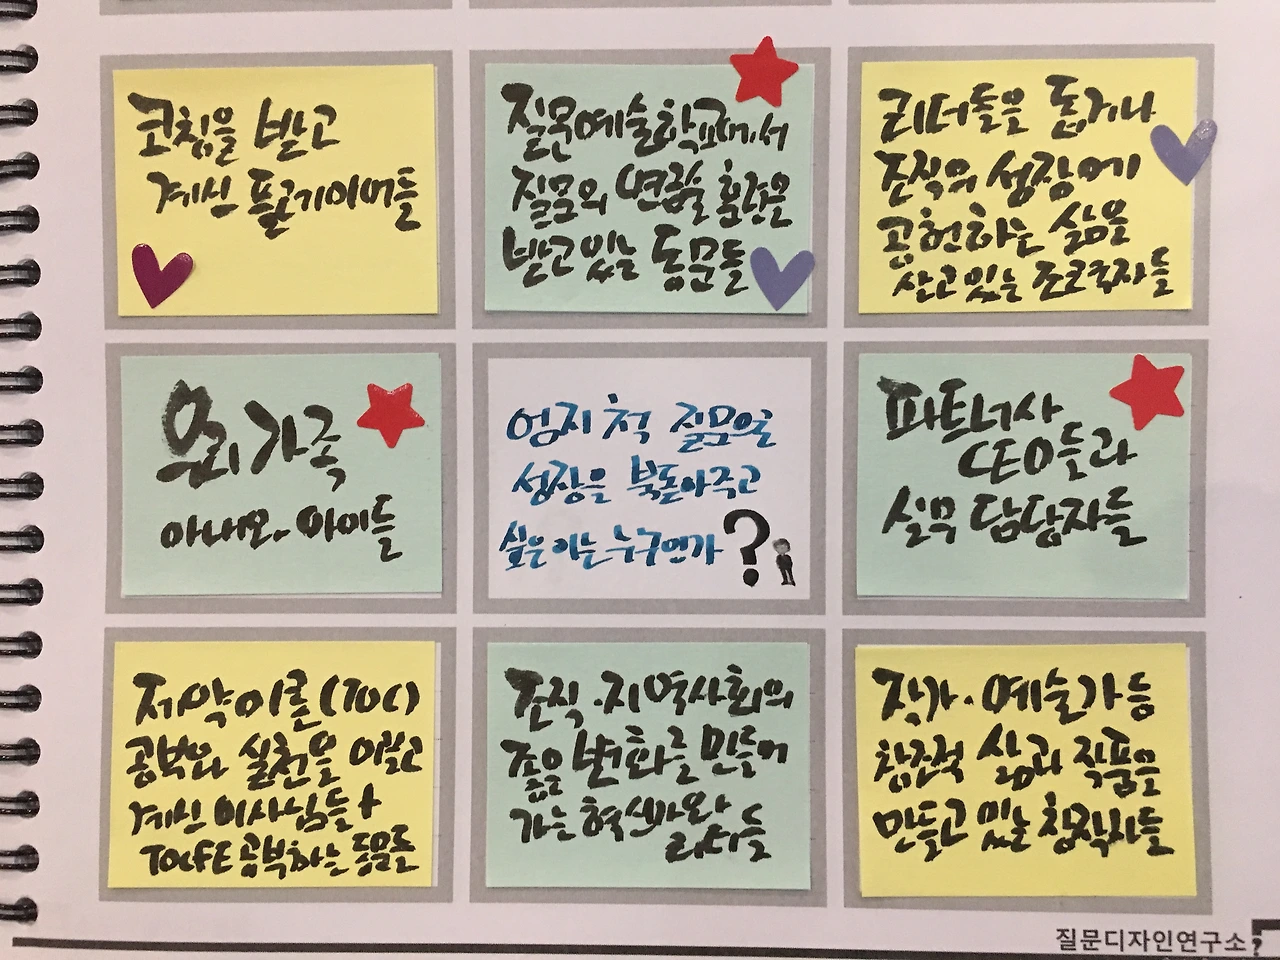 코칭을 받고
계신 풀기이버들
질문예술학교에서
질문의 연금술 훈련을
받고 있는 동문들
리더들을 돕거나
조직의 성장에
공헌하는 삶을
살고 있는 조력자들
우리 가족
아내와 아이들
엉지척 질문으로
성장을 북돋아주고
싶은 이는 누구인가?
파트너사
CEO들과
실무 담당자들
제약이론(TOC)
공부와 실천을 이끌고
계신 이사님들+
TOCFE 공부하는 동문들
조직·지역사회의
좋은 변화를 만들어
가는 혁신가와
리더들
작가·예술가 등
창조적 삶과 작품을
만들고 있는 창작자들
질문디자인연구소